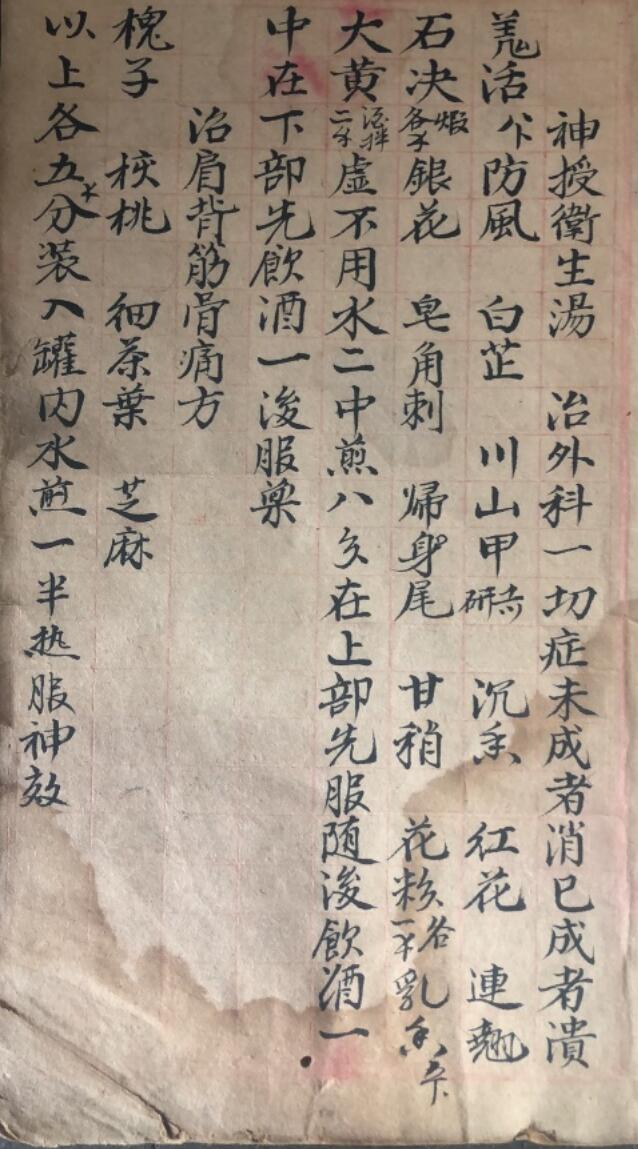 神授衛生湯 治外科一切症未成者消已成者潰
羗活 防風 白芷 川山甲 研 沉香 紅花 連翹
石决 煅各 銀花 皂角刺 歸身尾 甘稍 花粉 各 乳香
大黄 酒拌二 虛不用水二中煎八分在上部先服随後飲酒一
中在下部先飲酒一後服藥
治肩背筋骨痛方
槐子 核桃 细茶葉 芝麻
以上各五分装入罐内水煎一半热服神效